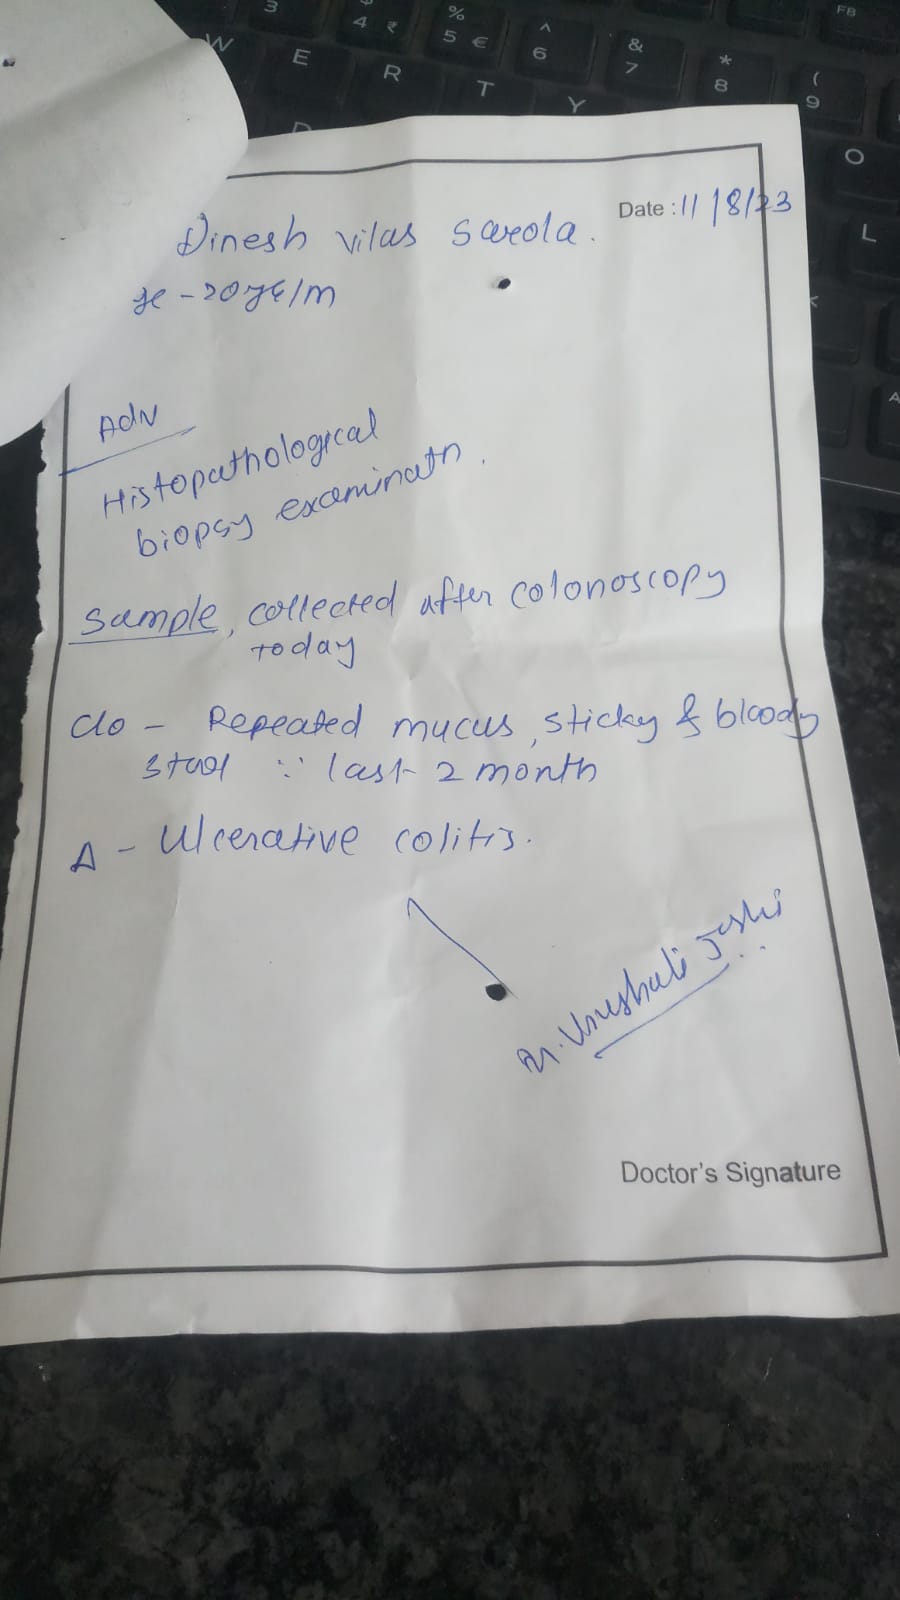 Date : 11/8/23
Dinesh vilas Sarola.
ge - 20 yr/m
Adv
Histopathological
biopsy examinatn.
Sample, collected after colonoscopy
today
C/o - Repeated mucus, sticky & bloody
stool ∵ last 2 month
Δ - Ulcerative colitis.
Dr. Vrushali Joshi
Doctor's Signature
3 4 ₹ % 5 € ^ 6 & 7 * 8 ( 9 F8
W E R T Y O
D L
<
A